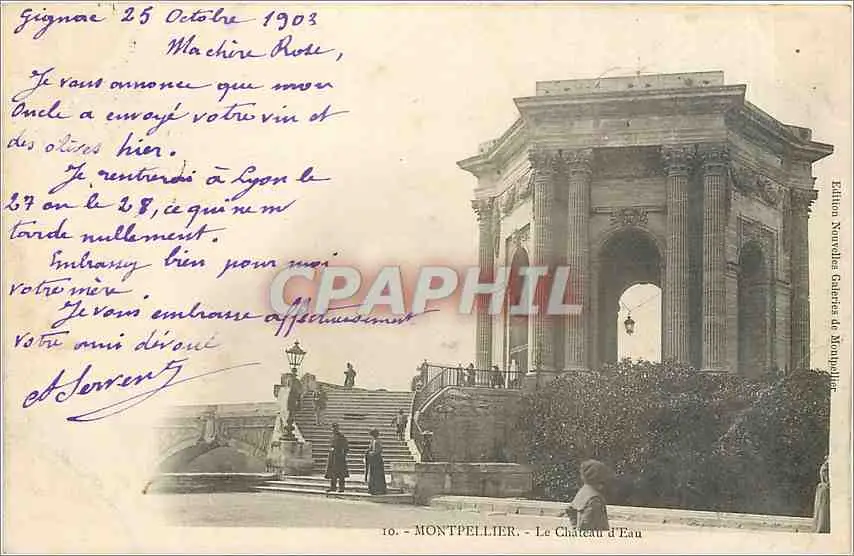 Gignac 25 Octobre 1903
Ma chère Rose,
Je vous annonce que mon
Oncle a envoyé votre vin et
des olives hier.
Je rentrerai à Lyon le
27 ou le 28, ce qui ne m'
tarde nullement.
Embrassez bien pour moi
votre mère.
Je vous embrasse affectueusement
Votre ami dévoué
A Servent
CPARAPHIL
Edition Nouvelles Galeries de Montpellier
10. - MONTPELLIER. - Le Château d'Eau